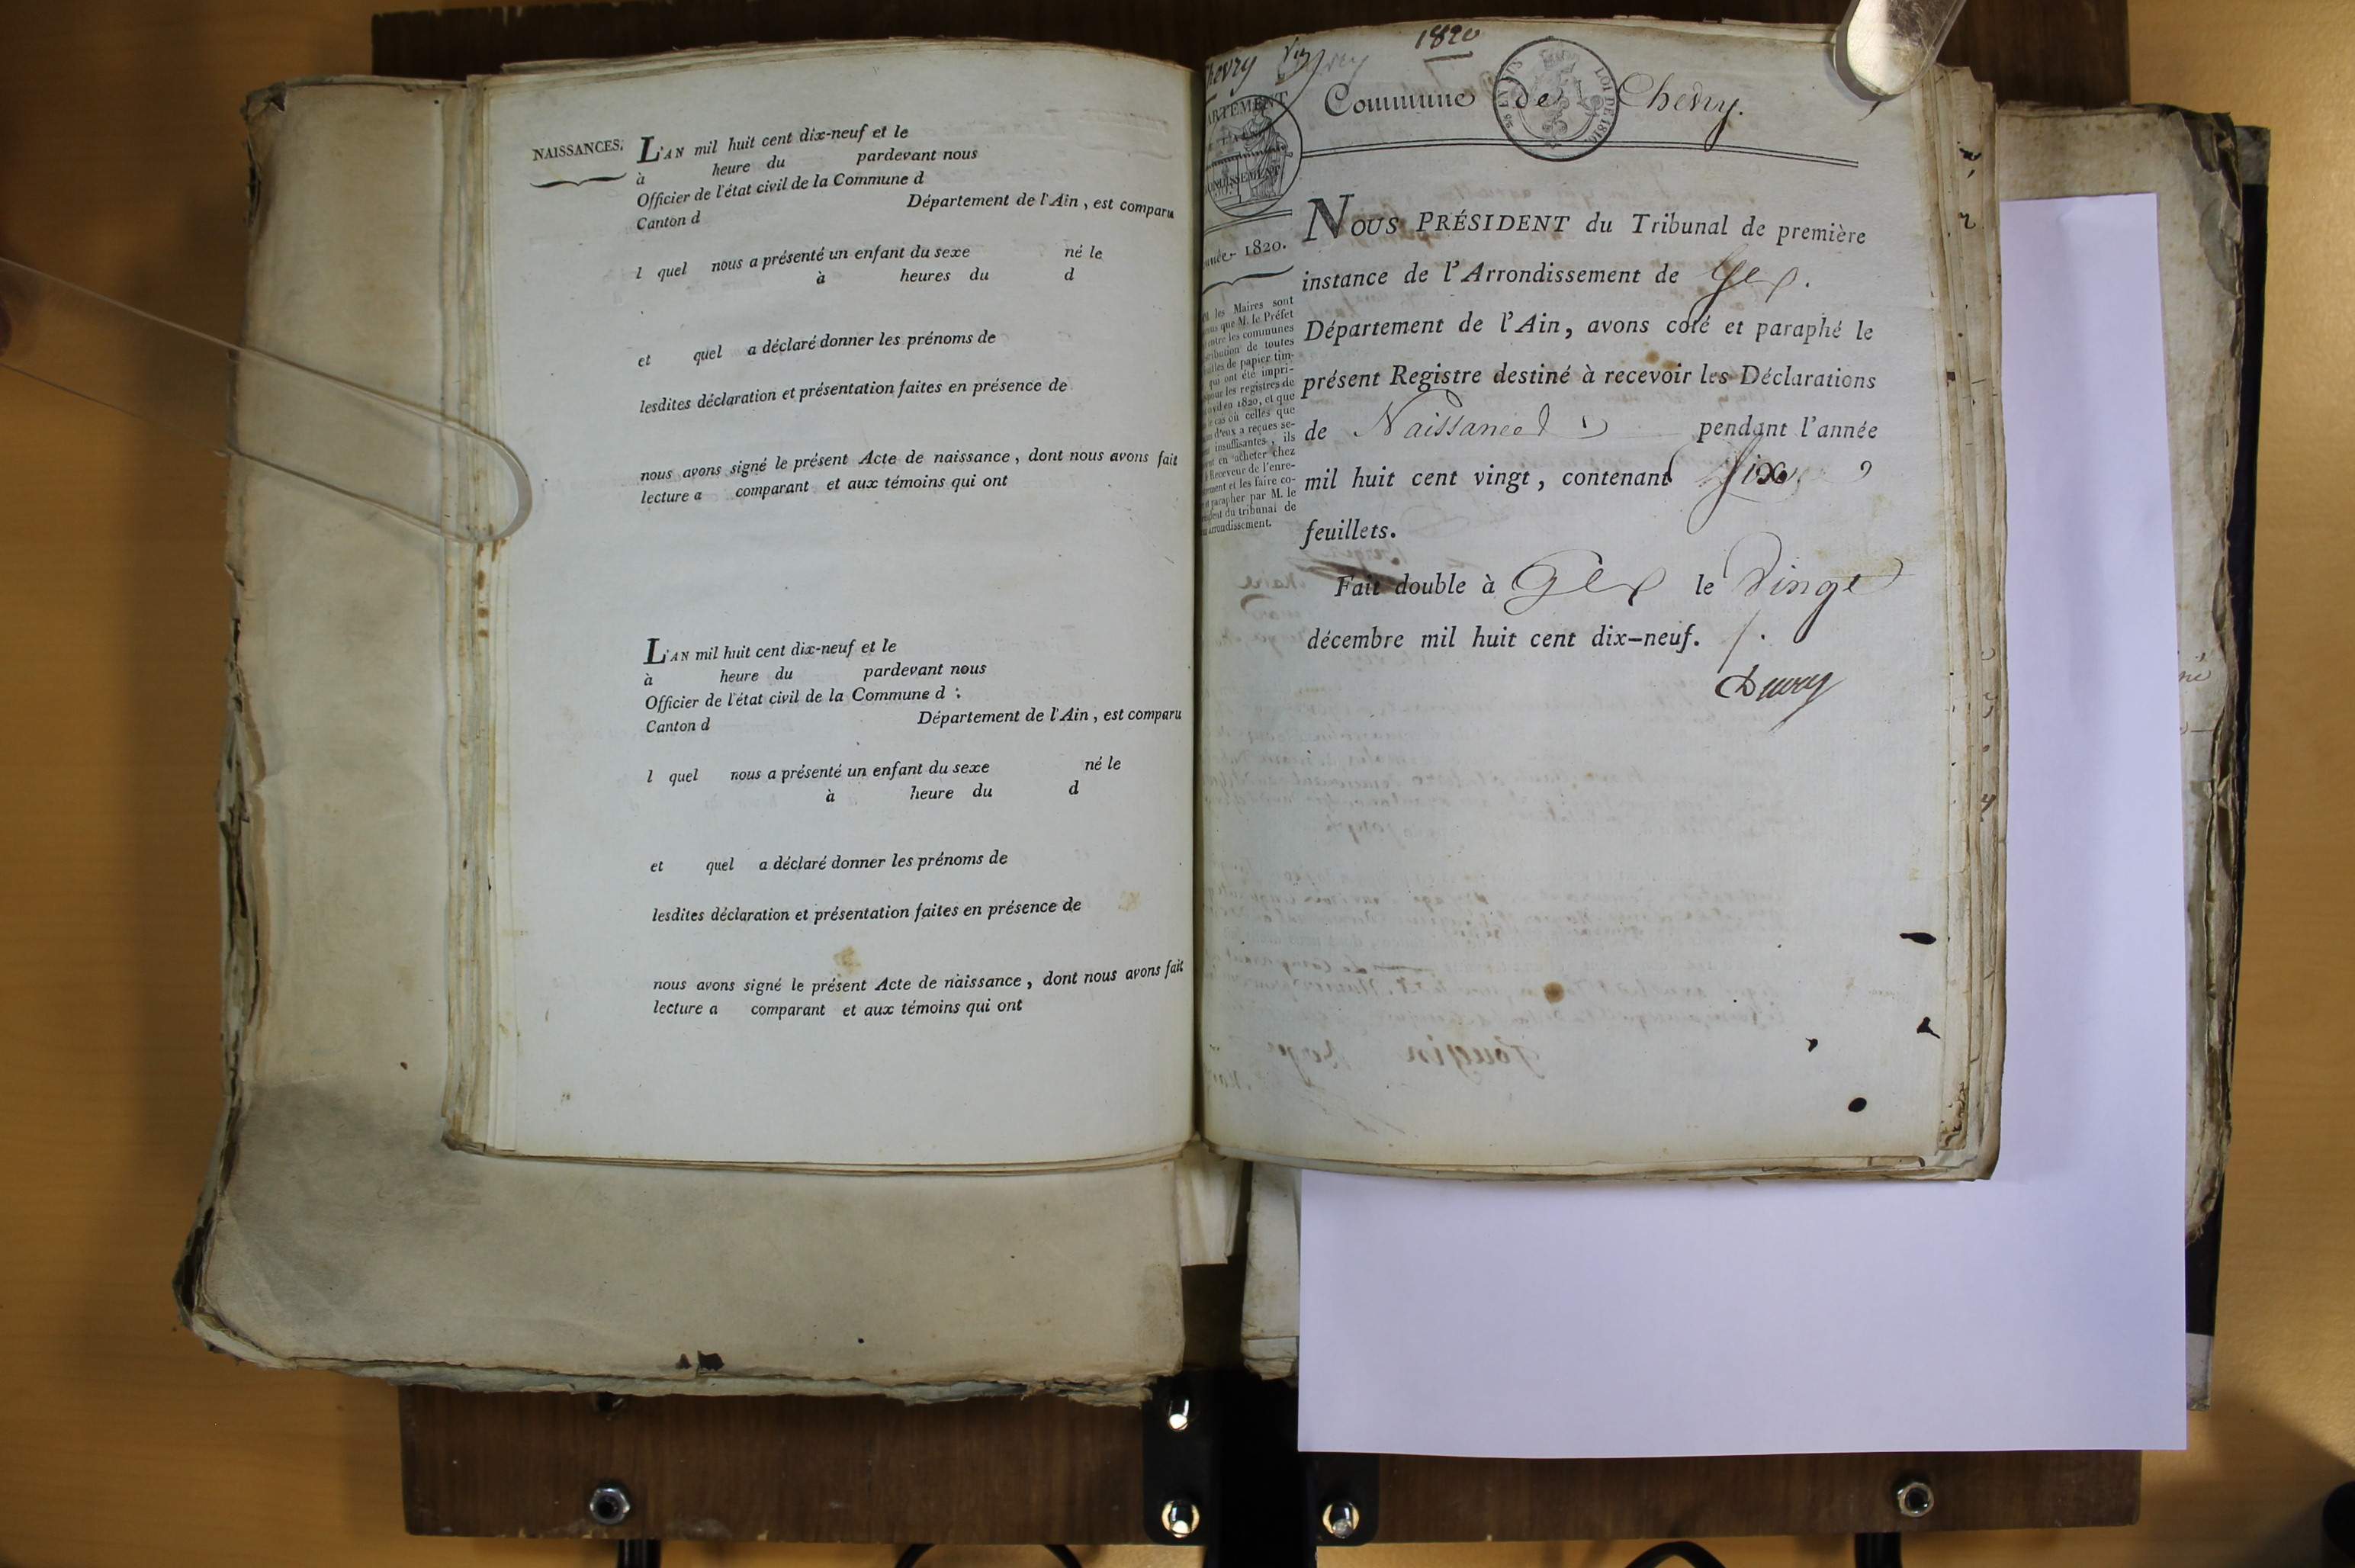 NAISSANCES.
L'AN mil huit cent dix-neuf et le
à heure du pardevant nous
Officier de l'état civil de la Commune d
Canton d Département de l'Ain, est comparu
l quel nous a présenté un enfant du sexe né le
à heures du d
et quel a déclaré donner les prénoms de
lesdites déclaration et présentation faites en présence de
nous avons signé le présent Acte de naissance, dont nous avons fait
lecture a comparant et aux témoins qui ont
L'AN mil huit cent dix-neuf et le
à heure du pardevant nous
Officier de l'état civil de la Commune d
Canton d Département de l'Ain, est comparu
l quel nous a présenté un enfant du sexe né le
à heure du d
et quel a déclaré donner les prénoms de
lesdites déclaration et présentation faites en présence de
nous avons signé le présent Acte de naissance, dont nous avons fait
lecture a comparant et aux témoins qui ont
1820
Commune de Chevry.
LOI DE 1816
1820.
NOUS PRÉSIDENT du Tribunal de première
instance de l'Arrondissement de Gex.
Département de l'Ain, avons coté et paraphé le
présent Registre destiné à recevoir les Déclarations
de Naissances pendant l'année
mil huit cent vingt, contenant Six
feuillets.
Fait double à Gex le Vingt
décembre mil huit cent dix-neuf.
les Maires sont
que M. le Préfet
entre les communes
de toutes
de papier tim-
qui ont été impri-
pour les registres de
en 1820, et que
le cas où celles que
d'eux a reçues se-
insuffisantes, ils
en acheter chez
Receveur de l'enre-
et les faire co-
parapher par M. le
du tribunal de
arrondissement.